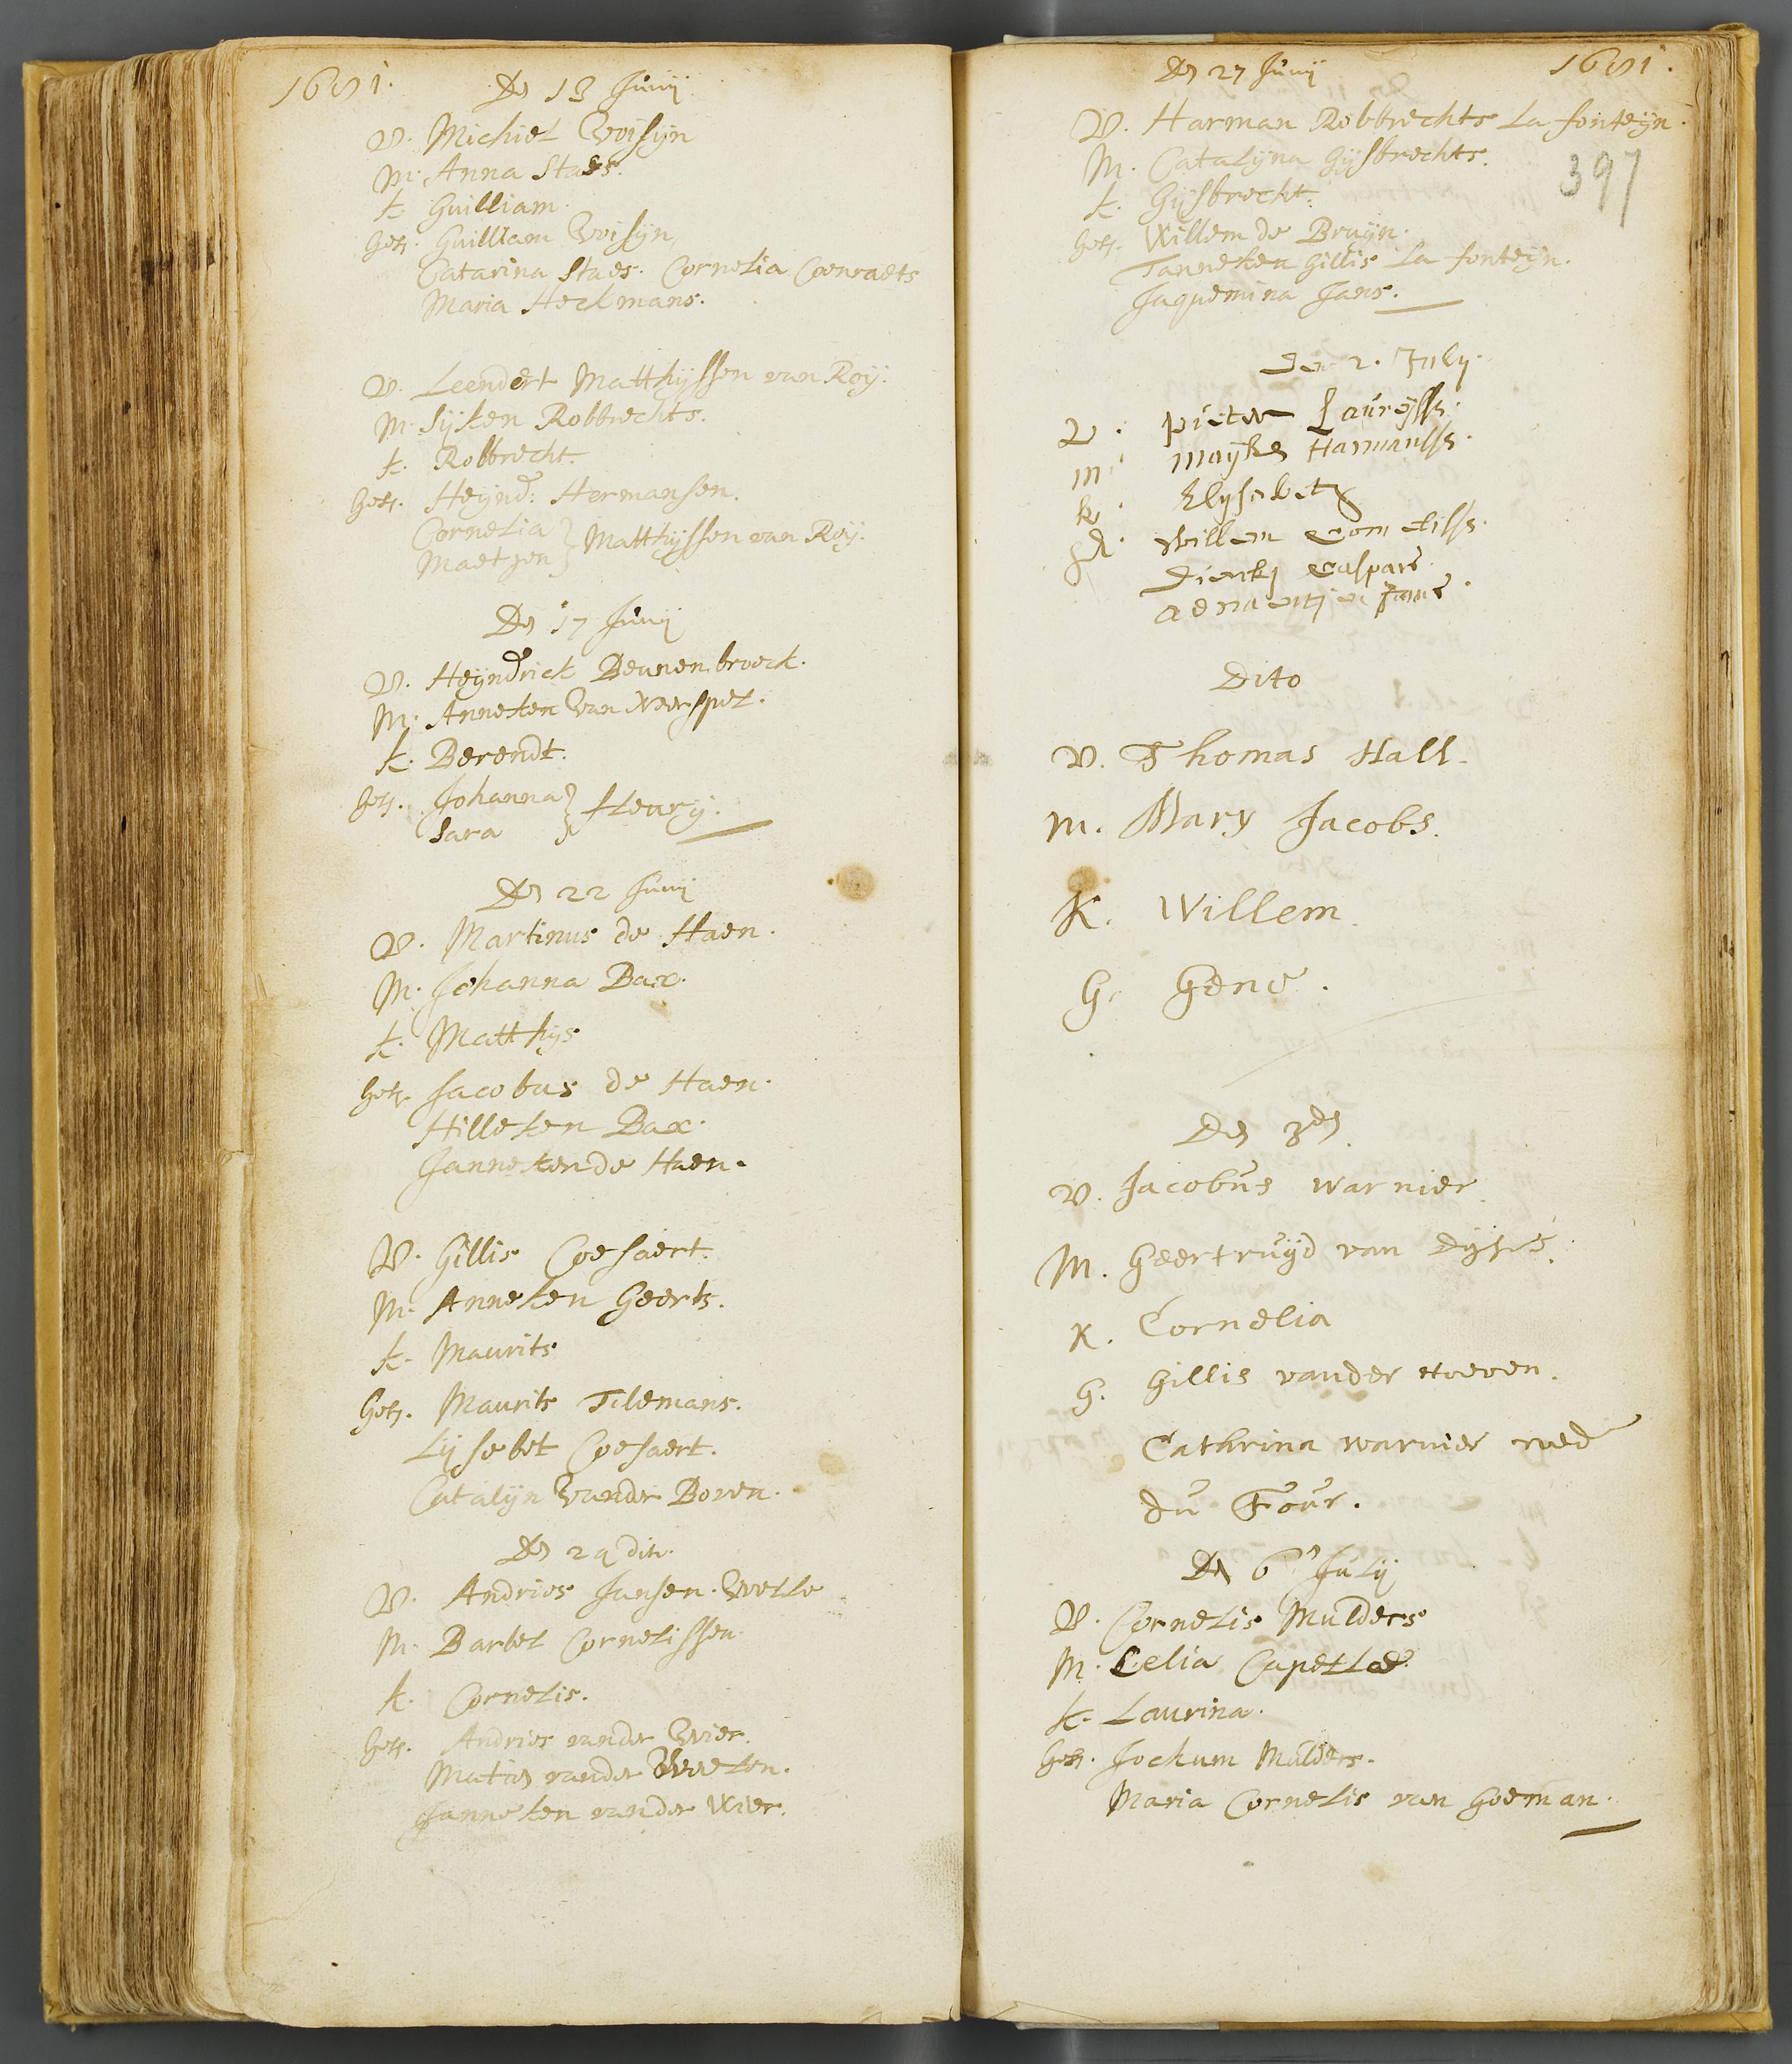 1651.
Den 13 Junij
V. Michiel Voisijn
M. Anna Staes.
k. Guilliam.
Get. Guilliam Voisijn,
Catarina Staes. Cornelia Coenraets
Maria Heckmans.
V. Leendert Matthijssen van Roij.
M. Sijken Robbrechts.
k. Robbrecht.
Get. Heijnd: Hermansen.
Cornelia } Matthijssen van Roij.
Maetgen
Den 17 Junij
V. Heijndrick Beunenbroeck.
M. Anneken van Weerspel.
k. Berendt.
Get. Johanna } Fleurij.
Sara
Den 22 Junij
V. Martinus de Haen.
M. Johanna Bax.
k. Matthijs
Get. Jacobus de Haen.
Hilleken Bax.
Janneken de Haen.
V. Gillis Coesaert.
M. Anneken Geerts.
k. Maurits
Get. Maurits Tilemans.
Lijsebet Coesaert.
Catalijn vander Boven.
Den 29 dito.
V. Andries Jansen. Welle
M. Barbel Cornelissen
k. Cornelis.
Get. Andries vander Wier.
vander
Janneken vander Wier.
Den 27 Junij
1651.
V. Harman Robbrechts La fonteijn.
M. Catalijna Gijsbrechts.
k. Gijsbrecht.
397
Get. Willem de Bruijn.
Tanneken Gillis La fonteijn.
Jaquemina Jans.
Den 2. July.
V. pieter Laureijss.
m. mayken Harmanss.
k. Elysabet
get. Willem Corneliss.
Dientj Caspars.
adriaentjen Jans.
Dito
V. Thomas Hall.
M. Mary Jacobs.
K. Willem
G. Gene.
Den 3den.
V. Jacobus Warnier.
M. Geertruijd van Dijke.
K. Cornelia
G. Gillis vander Hoeven.
Cathrina Warnier wed
du Four.
Den 6n Julij
V. Cornelis Mulders
M. Celia Capelle.
k. Laurina.
Get. Jochum Mulders.
Maria Cornelis van Goeman.